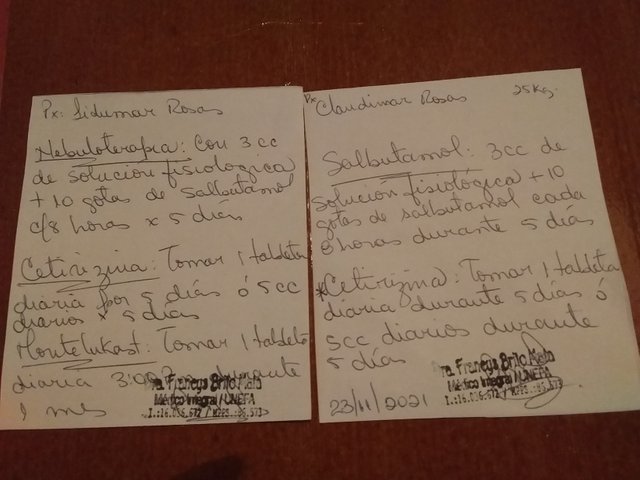 Px: Lidumar Rosas
Nebuloterapia: Con 3 cc
de solución fisiologica
+ 10 gotas de salbutamol
c/8 horas x 5 dias
Cetirizina: Tomar 1 tableta
diaria por 5 días ó 5 cc
diarios x 5 días
Montelukast: Tomar 1 tableta
diaria 3:00 durante
1 mes
Francys Brito
Médico Integral / UNEFA
Px Claudimar Rosas 25 Kg.
Salbutamol: 3cc de
solución fisiológica + 10
gotas de salbutamol cada
8 horas durante 5 días
*Cetirizina: Tomar 1 tableta
diaria durante 5 días ó
5cc diarios durante
5 días
23/11/2021
Francys Brito
Médico Integral / UNEFA